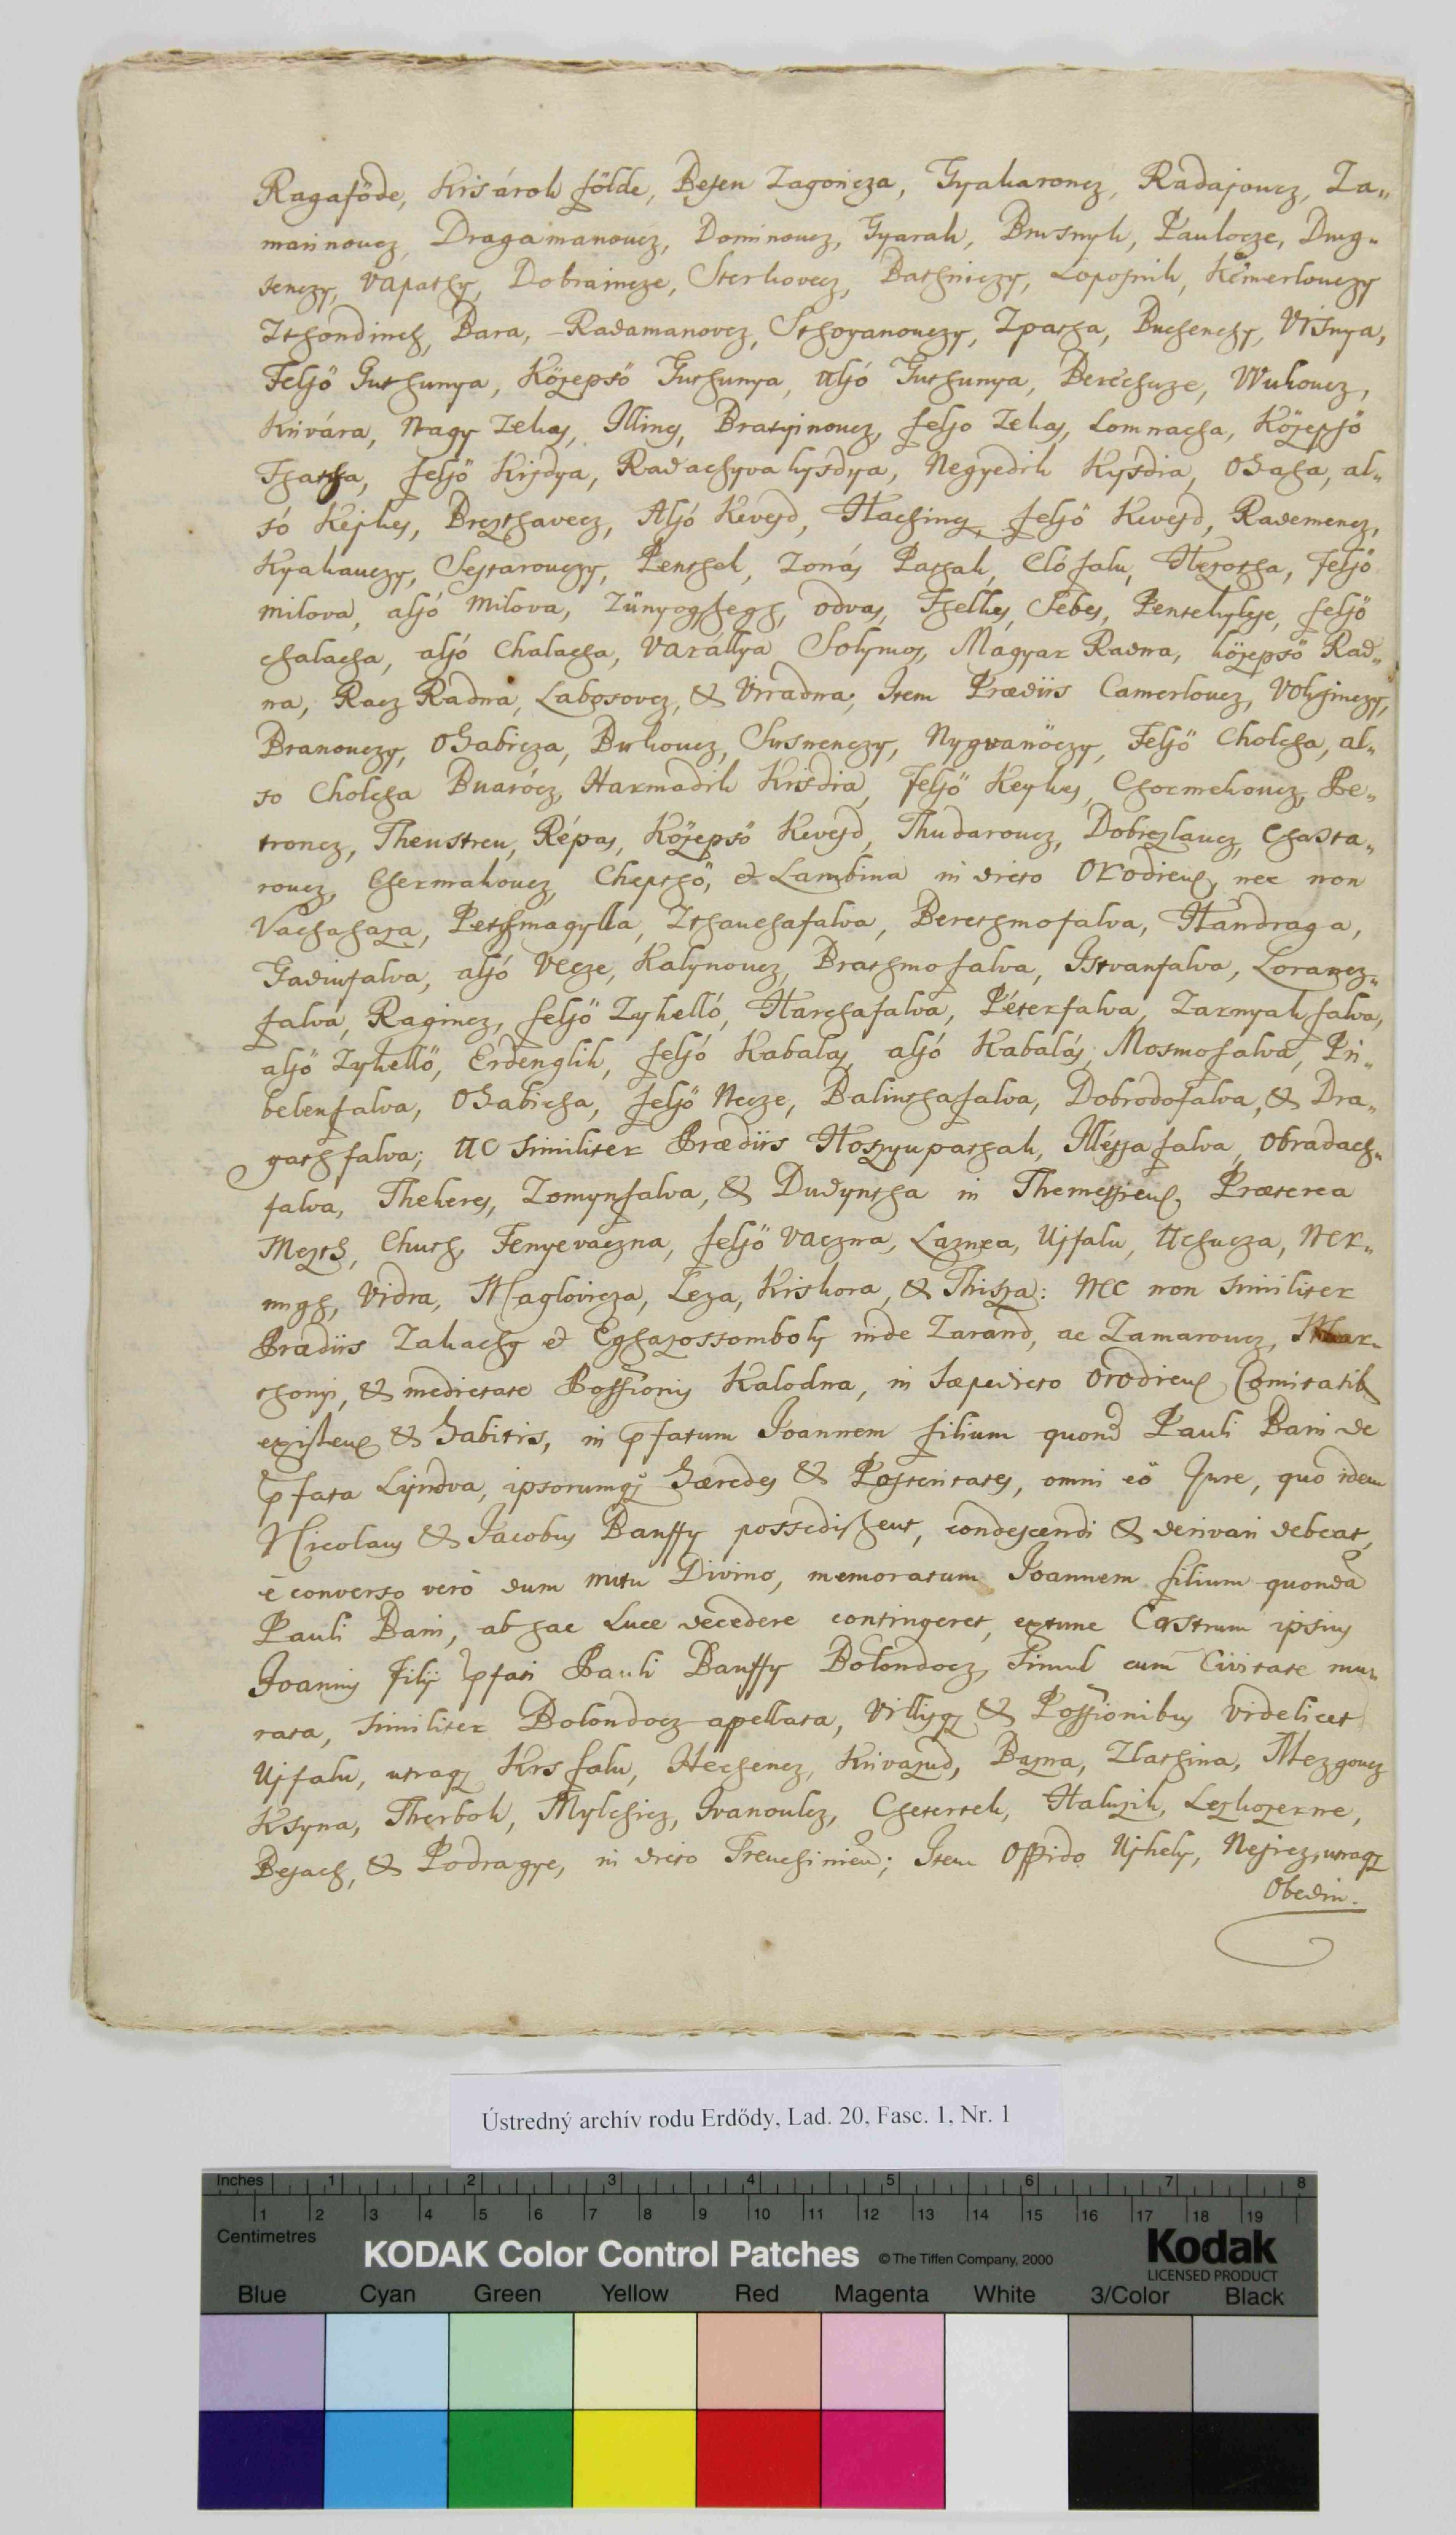 Ragaföde, Krisárok földe, Besen Zagoricza, Gyakaroncz, Radajoucz, Za„
marinoucz, Dragamanoucz, Dominoucz, Gyarak, Brusnyk, Paulocze, Drug„
senczy, Vapathy, Dobraincze, Sterkovecz, Bathniczy, Lopossnik, Kemerlouczy
Zthondinch, Bara, Radamanovcz, Sthoyanouczy, Zpatha, Buchenchy, Visnya,
Felsö Guthunya, Közepsö Guthunya, Alsó Guthunya, Berechuze, Wukoucz,
Knivára, Nagy Zekas, Illing, Bratyinoucz, felso Zekas, Lomnacha, Közepsö
Thatha, felsö Kisdya, Radachyva kysdya, Negyedik Kysdia, Ohaha, al„
só Keskes, Brezthavecz, Alsó Kevesd, Haching, felsö Kevesd, Rademencz,
Kyakauczy, Sestarouczy, Penthek, Zonás Pathak, Elö falu, Hezotha, Felsö
milova, alsó milova, Zúnyogshegh, odvas, Thelkes, Sebes, Pentekhelyse, felsö
chalacha, alsó Chalacha, Varállya Solymos, Magyar Radna, közepsö Rad„
na, Racz Radna, Labosovcz, & Virradna; Item Prædiis Camerloucz, Volyinczy,
Branouczy, Ohabicza, Birkoucz, Susnenczy, Nygvanöczy, Felsö Cholcha, al„
so Cholcha Buarócz, Harmadik Krisdia, Felsö Keykes, Chormekoucz, Pe„
troncz, Theustreu, Répas, Közepsö Kevesd, Thudaroucz, Dobrezlaucz, Chasta„
roucz, Chermakoucz, Chepthö, et Lambina in dicto Orodiens, nec non
Vachahaza, Pethmagylla, Zthauchafalva, Berethmofalva, Handraga,
Gadiufalva, alsó Vecze, Kalynoucz, Brathmofalva, Istvanfalva, Lorancz„
falva, Ragincz, felsö Zykelló, Harchafalva, Péterfalva, Zarnyakfalva,
alsö Zykellö, Erdenglik, felsó Kabalas, alsó Kabalás, Mosmofalva, Pri„
belenfalva, Ohabicha, felsö Necze, Balinthafalva, Dobrodofalva, & Dra„
gathfalva; AC similiter Prædiis Hoszyupathak, Illéssafalva, Obradach„
falva, Thekeres, Zomynfalva, & Dudyntha in Themessiens, Præterea
Mezth, Chuth, Fenyevaczna, felsö Vaczna, Laznea, Ujfalu, Achucza, Ner„
nigh, Vidra, Maglovicza, Leza, Kriskora, & Thisza: NEC non similiter
Prædiis Zakachy et Eghazossomboly inde Zarand, ac Zamaroucz,
thonyi, & medietate Possionis Kalodna, in sæpedicto Orodiens Comitatib
existens & habitis, in pfatum Joannem filium quond Pauli Bani de
pfata Lyndva, ipsorumq, Hæredes & Posteritates, omni eö Jure, quo idem
Nicolaus & Jacobus Banffy possedissent, condescendi & derivari debeat,
è converso verò dum nutu Divino, memoratum Joannem filium quonda
Pauli Bani, ab hac Luce decedere contingeret, extunc Castrum ipsius
Joannis filij pfati Pauli Banffy Bolondocz, Simul cum Civitate mu„
rata, similiter Bolondocz appellata, Villisq, & Possionibus videlicet
Ujfalu, utraq, Kis falu, Hechencz, Knivazud, Bazna, Zlathina, Mezgoucz
Ksyna, Therbok, Mylchicz, Ivanoulcz, Chetertek, Haluzik, Lezkozerne,
Besach, & Podragye, in dicto Trenchinien; Item Oppido Ujhely, Nesricz, utraq,
Obedin.
Ústredný archív rodu Erdődy, Lad. 20, Fasc. 1, Nr. 1
Inches 1 2 3 4 5 6 7 8
1 2 3 4 5 6 7 8 9 10 11 12 13 14 15 16 17 18 19
Centimetres
KODAK Color Control Patches © The Tiffen Company, 2000 Kodak
LICENSED PRODUCT
Blue Cyan Green Yellow Red Magenta White 3/Color Black